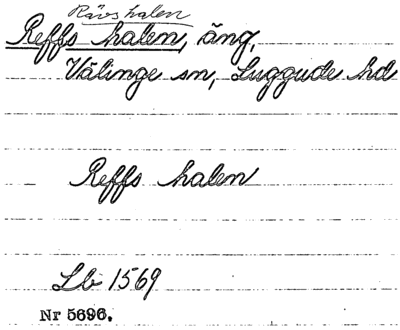 Rävshalen
Reffs halen, äng,
Välinge sn, Luggude hd
Reffs halen
Lb 1569
Nr 5696.